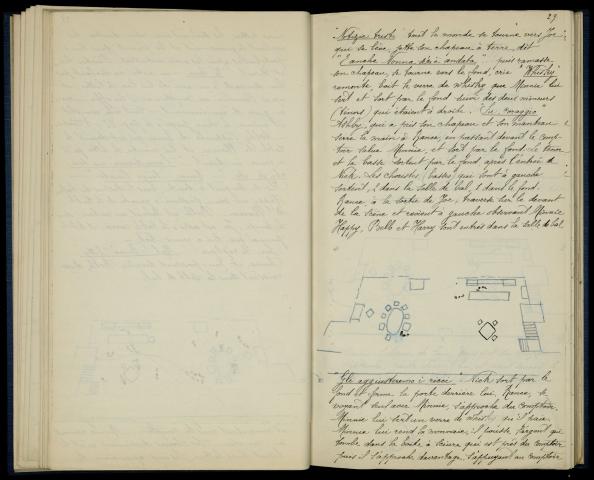 29
"Notizie tristi" tout le monde se tourne vers Joe
qui se lève, jette son chapeau à terre, dit
"E anche Nonna se n'è andata," puis ramasse
son chapeau, se tourne vers le fond, crie "Whisky"
remonte, boit le verre de whisky que Minnie lui
sert et sort par le fond suivi des deux mineurs
(ténors) qui étaient à droite. "Su, coraggio"
Ashby, qui a pris son chapeau et son manteau
serre la main à Rance, en passant devant le comp-
toir salue Minnie, et sort par le fond. Le ténor
et la basse sortent par le fond, après l'entrée de
Nick. Les choristes (basses) qui sont à gauche
sortent, 2 dans la salle de bal, 2 dans le fond.
Rance, à la sortie de Joe, traverse sur le devant
de la scène et revient à gauche observant Minnie
Happy, Bello et Harry sont entrés dans la salle de bal.
"Gli aggiusteremo i ricci" Nick sort par le
fond et ferme la porte derrière lui. Rance, se
voyant seul avec Minnie, s'approche du comptoir.
Minnie lui sert un verre de whisky qu'il paie.
Minnie lui rend la monnaie: il pousse l'argent qui
tombe dans la boîte à sciure qui est près du comptoir
puis il s'approche davantage, s'appuyant au comptoir